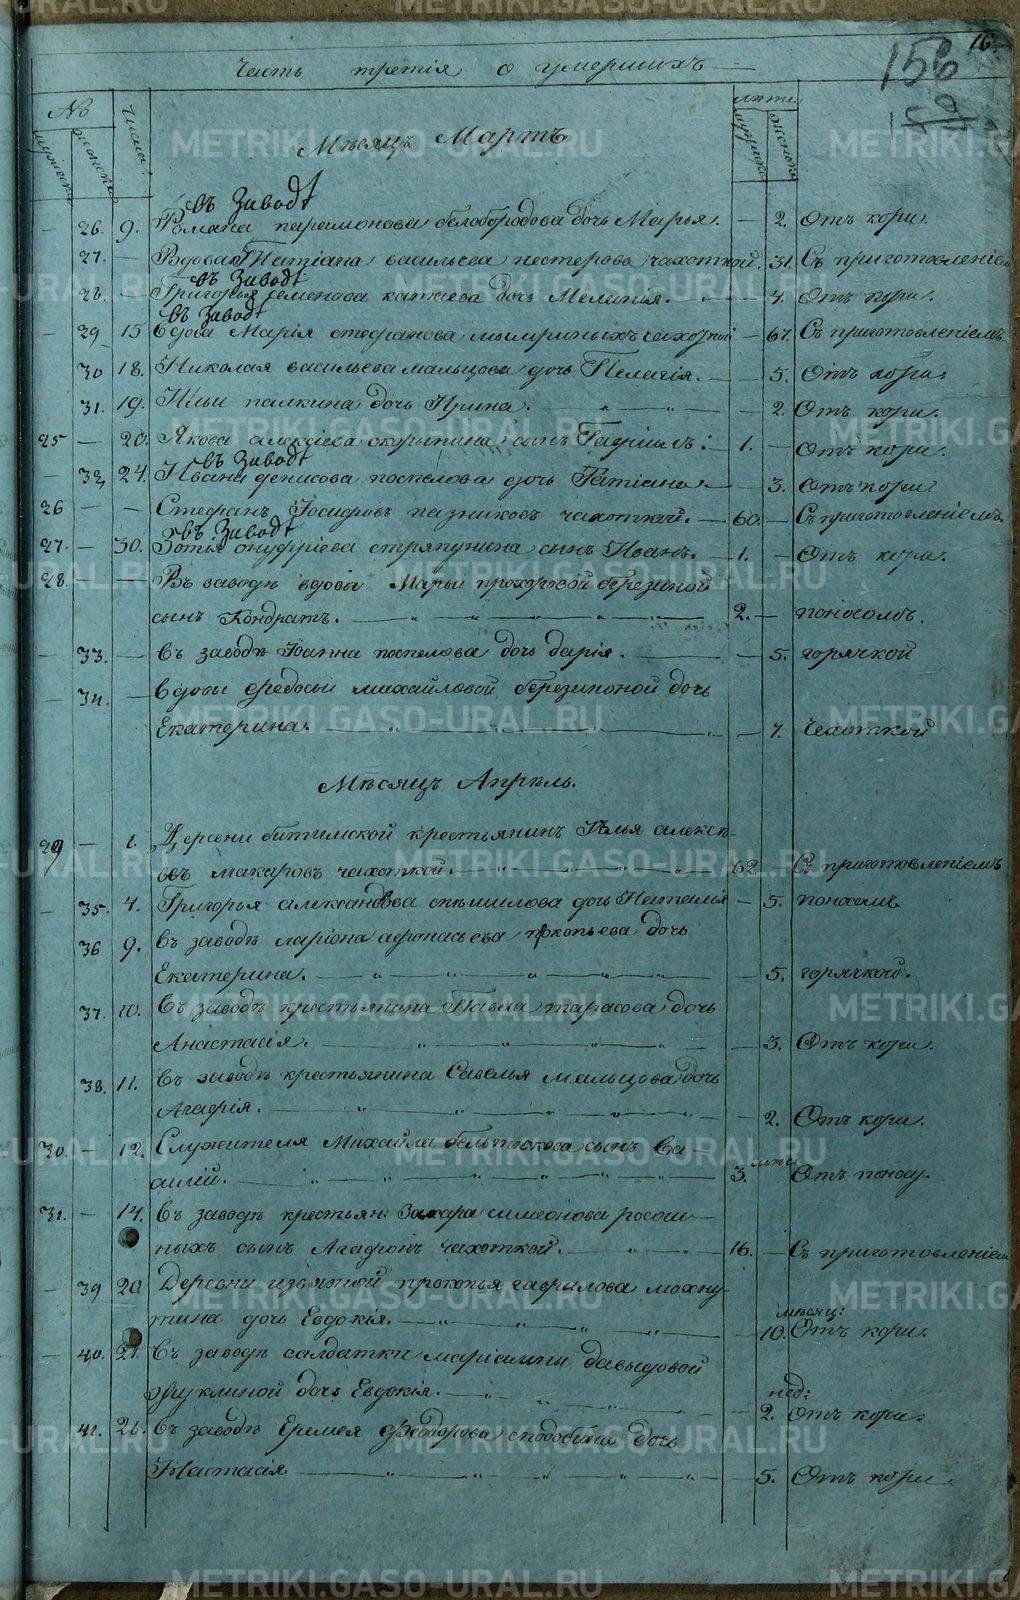 16.
156
Часть третія о умершихъ
№ числа лѣта
мужска женска мужска женска
Мѣсяцъ Мартъ
въ Заводѣ
— 26. 9. Романа парамонова бѣлобородова дочь Марья. — 2. Отъ кори.
— 27. — Вдова Татіана васильева пестерова чахоткой. 31. Съ приготовленіем
въ Заводѣ
— 28. — Григорья семенова катаева дочь Меланія. — 4. Отъ кори.
въ Заводѣ
— 29 15 вдова Марія стефанова мымриныхъ чахоткой — 67. Съ приготовленіемъ.
30 18. Николая васильева мальцова дочь Пелагія. — 5. Отъ кори.
31. 19. Ильи палкина дочь Ирина. — 2. Отъ кори.
25 — 20. Якова алексіева скорынина сынъ Гавріилъ: 1. — отъ кори.
въ Заводѣ
— 32 24. Ивана денисова поспелова дочь Татіана. — 3. Отъ кори.
26 — — Стефанъ Іосифовъ пазниковъ чахоткой. — 60 — Съ приготовленіемъ.
въ Заводѣ
27. — 30. Зотія онуфріева стряпунина сынъ Иванъ. — 1. — Отъ кори.
28. — — Въ заводѣ вдовы Марьи прохоровой березиной
сынъ Кондратъ. 2. — поносомъ.
— 33. — въ заводѣ Іоанна поспелова дочь дарія. — 5. горячкой
— 34. — вдовы Федосьи михайловой березиной дочь
Екатерина. — 7. Чахоткой
Мѣсяцъ Апрѣль.
29 — 1. Деревни битимской крестьянинъ Илья алексѣ-
евъ макаровъ чахоткой. 62 Съ приготовленіемъ
— 35. 4. Григорья александрова спѣшилова дочь Наталья — 5. поносомъ
36 9. въ заводѣ ларіона афонасьева прокопьева дочь
Екатерина. — 5. горячкой.
37. 10. Въ заводѣ крестьянина Павла тарасова дочь
Анастасія. — 3. Отъ кори.
38. 11. въ заводѣ крестьянина Савелья мальцова дочь
Агафія. — 2. Отъ кори.
30. — 12. Служителя Михайла бѣльтюкова сынъ Ва
силій. 3. Отъ поносу.
31. — 14. въ заводѣ крестьян: Захара симеонова россош-
ныхъ сынъ Агафонъ чахоткой. 16. — Съ приготовленіем
— 39 20 Деревни извязной прокопья гаврилова махну-
мѣсяц:
тина дочь Евдокія. — 10. Отъ кори.
— 40. 21. въ заводѣ салдатки маріамны давыдовой
нед:
дочь Евдокія. — 2. отъ кори.
41. 26. въ заводѣ Еремея Феодорова дочь
Настасія — 5. Отъ кори
METRIKI.GASO-URAL.RU